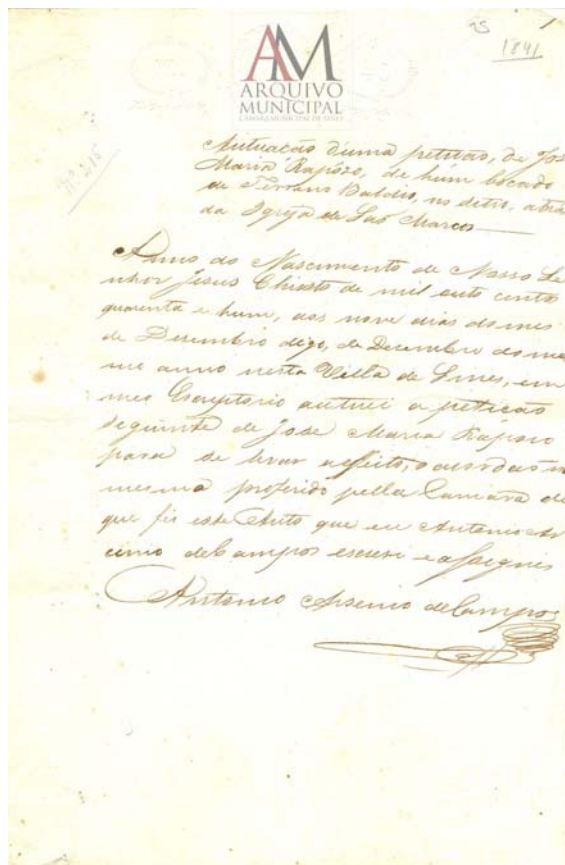 25 1
1841
AM
ARQUIVO
MUNICIPAL
CÂMARA MUNICIPAL DE SINES
Nº 215
Autuação d'uma petição, de José
Maria Rapozo, de hum bocado
de Terreno Baldio, no sitio, atras
da Igreja de São Marcos
Anno do Nascimento de Nosso Se
nhor Jesus Christo de mil outo centos
quarenta e hum, aos nove dias do mes
de Desembro digo, de Decembro do mes
mo anno nesta Villa de Sines, em
meo Escriptorio autuei a petição
seguinte de José Maria Raposo
para se levar a effeito, o acordão na
mesma proferido pella Camara de
que fis este Auto que eu Antonio Ar
cenio de Campos escrevi e assignei
Antonio Arsenio de Campos